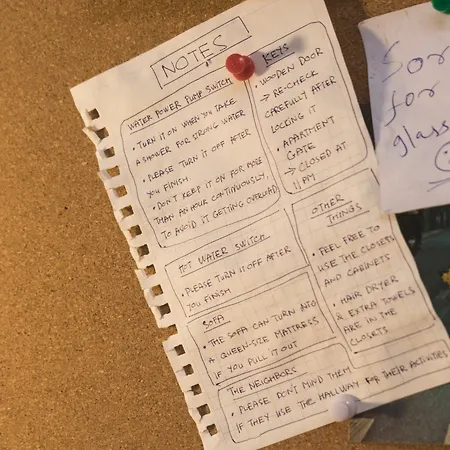 NOTES
WATER POWER PUMP SWITCH
• TURN IT ON WHEN YOU TAKE
A SHOWER FOR STRONG WATER
• PLEASE TURN IT OFF AFTER
YOU FINISH
• DON'T KEEP IT ON FOR MORE
THAN AN HOUR CONTINUOUSLY,
TO AVOID IT GETTING OVERLOAD
KEYS
• WOODEN DOOR
→ RE-CHECK
CAREFULLY AFTER
LOCKING IT
• APARTMENT
GATE
→ CLOSED AT
11 PM
HOT WATER SWITCH
• PLEASE TURN IT OFF AFTER
YOU FINISH
SOFA
• THE SOFA CAN TURN INTO
A QUEEN-SIZE MATTRESS
IF YOU PULL IT OUT
OTHER
THINGS
• FEEL FREE TO
USE THE CLOSETS
AND CABINETS
• HAIR DRYER
& EXTRA TOWELS
ARE IN THE
CLOSETS
THE NEIGHBORS
• PLEASE DON'T MIND THEM
IF THEY USE THE HALLWAY FOR THEIR ACTIVITIES
for
glass